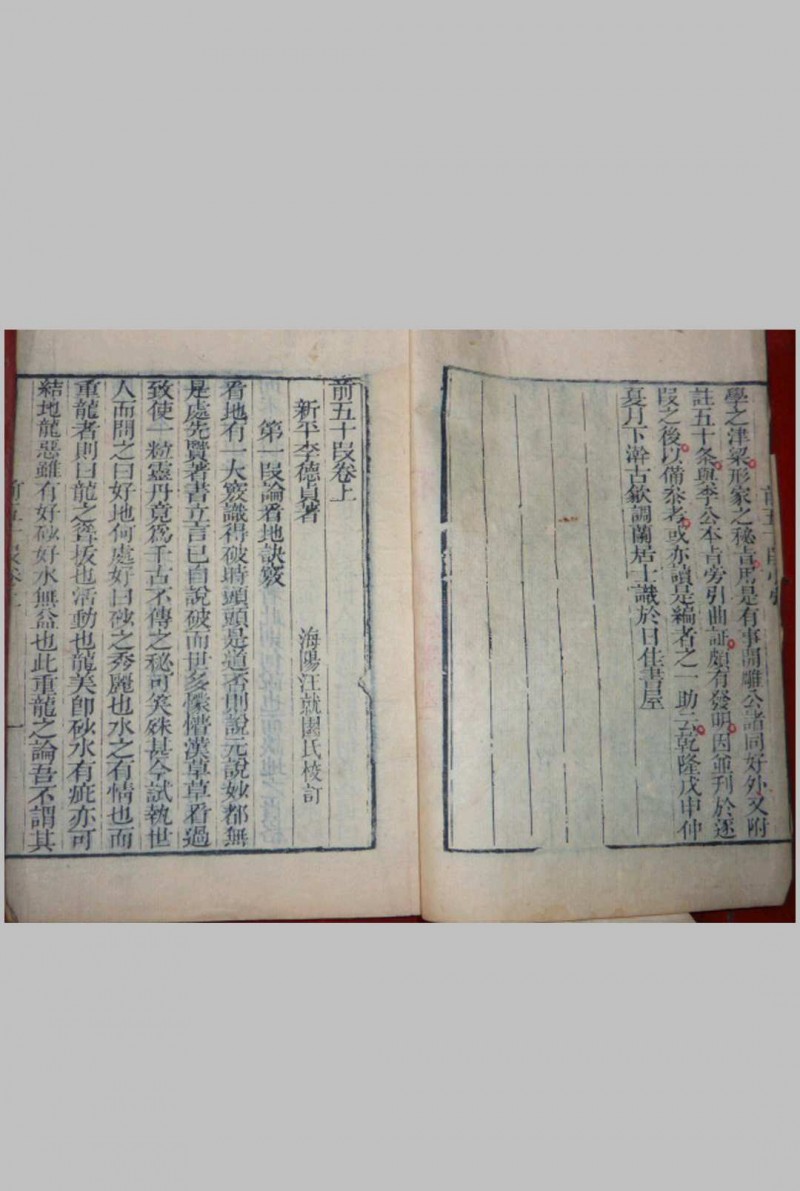 學之津梁形家之秘旨用是有事開雕公諸同好外又附
註五十条與李公本旨旁引曲証頗有發明因並刊於逐
段之後以備叅考或亦讀是編者之一助云乾隆戊申仲
夏月下澣古歙調蘭居士識於日佳書屋
前五十段卷上
新平李德貞著
海陽汪就園氏校訂
第一段論看地訣竅
看地有一大竅識得破時頭頭是道否則說元說妙都無
是處先賢著書立言已自說破而世多懞懂漢草草看過
致使一粒靈丹竟爲千古不傳之秘可笑殊甚今試執世
人而問之曰好地何處好曰砂之秀麗也水之有情也而
重龍者則曰龍之聳拔也活動也龍美卽砂水有疵亦可
結地龍惡雖有好砂好水無益也此重龍之論吾不謂其